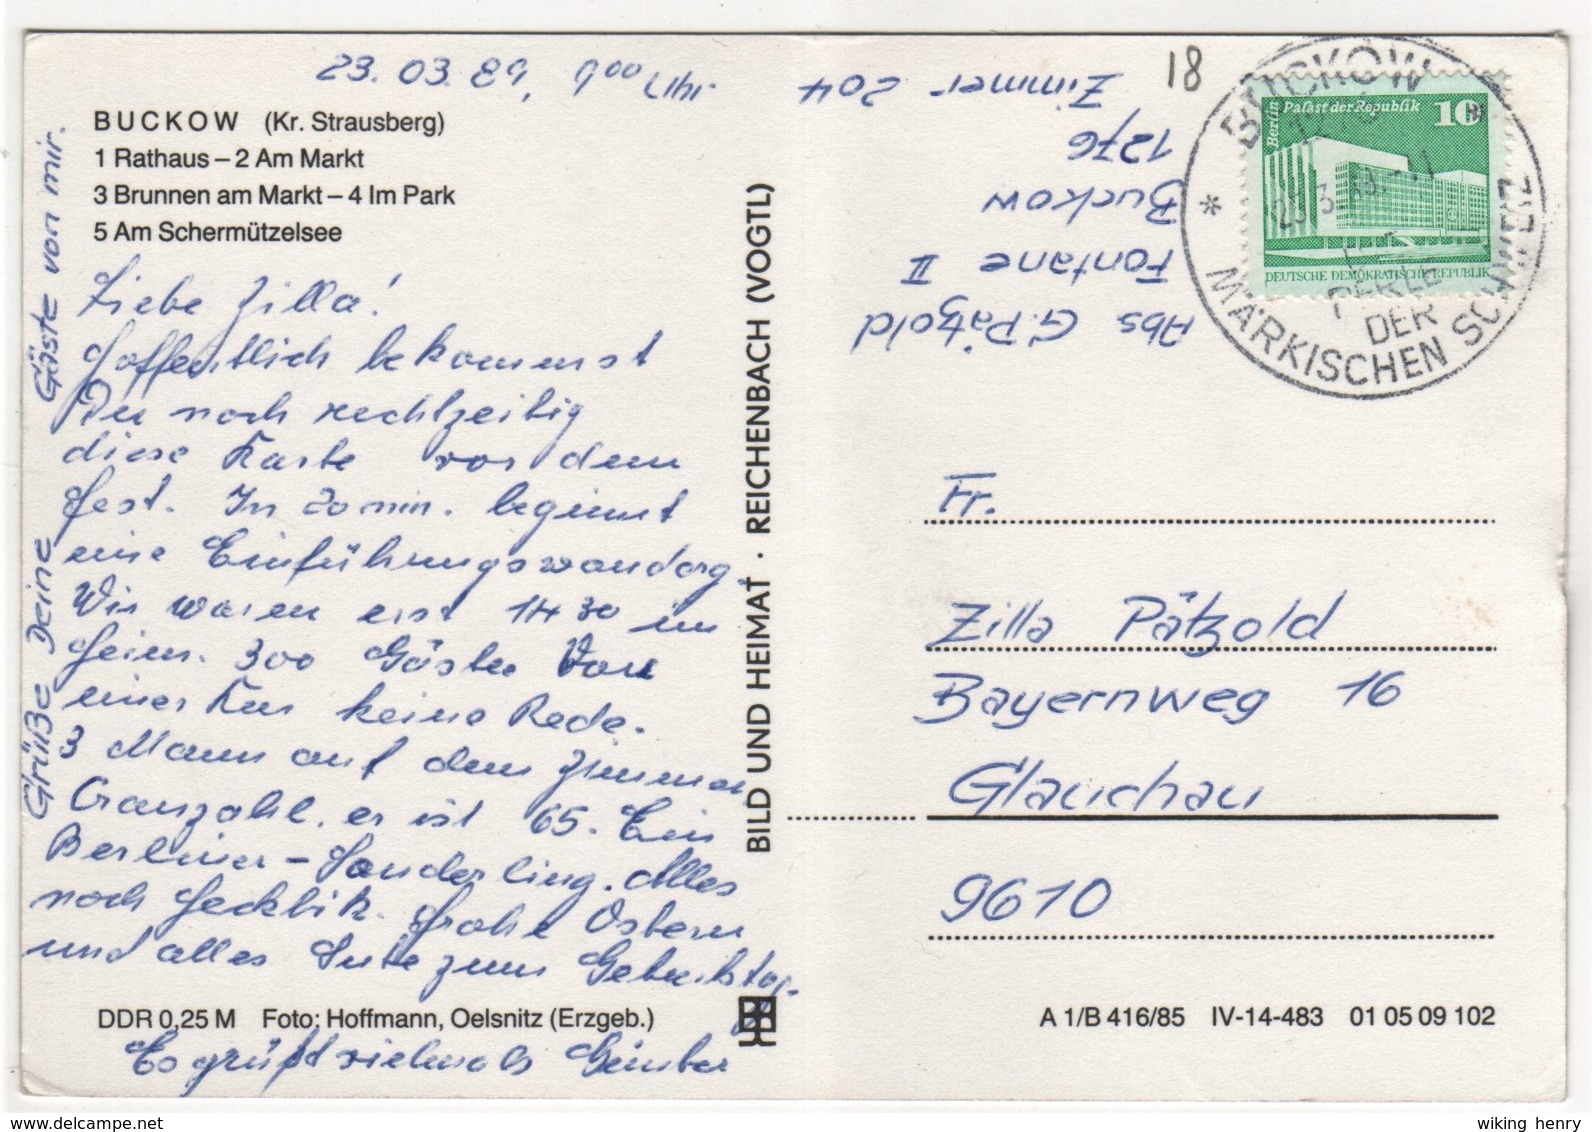 23.03.89, 9⁰⁰ Uhr
BUCKOW (Kr. Strausberg)
1 Rathaus – 2 Am Markt
3 Brunnen am Markt – 4 Im Park
5 Am Schermützelsee
Liebe Zilla!
Hoffentlich bekommst
Du noch rechtzeitig
diese Karte vor dem
Fest. In 20 min. beginnt
eine Einführungswanderg.
Wir waren erst 14 30 im
Heim. 300 Gäste Von
einer Kur keine Rede.
3 Mann auf dem Zimmer
Cranzahl. er ist 65. Ein
Berliner – Sonderling. Alles
noch Hecktik. Frohe Ostern
und alles Gute zum Geburtstag.
DDR 0,25 M Foto: Hoffmann, Oelsnitz (Erzgeb.)
Es grüßt vielmals Günther
Grüße Deine Gäste von mir.
BILD UND HEIMAT · REICHENBACH (VOGTL)
Abs G. Pätzold
Fontane II
Buckow
1276
Zimmer 204
18
BUCKOW
1276
23.3.89.
PERLE
DER
MÄRKISCHEN SCHWEIZ
Berlin Palast der Republik 10
DEUTSCHE DEMOKRATISCHE REPUBLIK
Fr.
Zilla Pätzold
Bayernweg 16
Glauchau
9610
A 1/B 416/85 IV-14-483 01 05 09 102
wiking henry